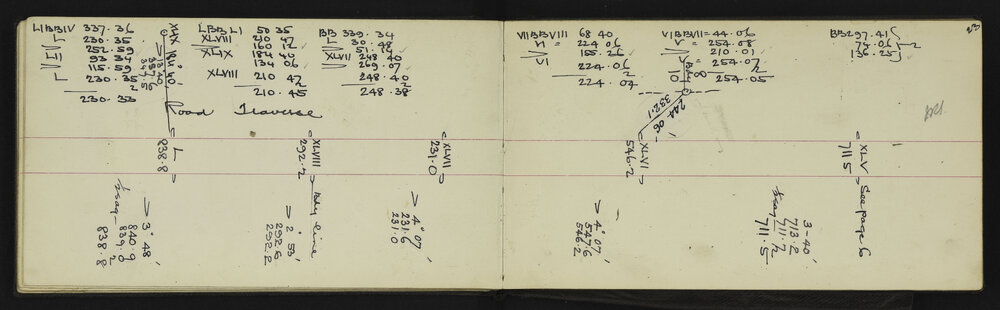 LIBBIV 337·36
L 230·35
252·59
II 93·34
115·59
230·35
2
230·33
XLIX
L
838·8
Road Traverse
3° 48'
840·9
839·0
838·8
LBBLI 50 35
XLVIII 210 47
160 12
XLIX 184 40
134 06
XLVIII 210 47
2
210·45
XLVIII
292·2
Bdy line
2° 53'
292·6
292·2
BB 339·34
L 30·48
51·14
XLVII 248 40
269·07
248·40
2
248·38
XLVII
231·0
4° 07'
231·6
231·0
VIIBBVIII 68 40
VI 224 06
155·26
VI 224·06
2
224·04
244·06'
332·1
XLVI
546·2
4° 07'
547·6
546·2
VIBBVII = 44·06
V = 254·08
210·01
= 254·07
2
254·05
BB297·41
72·06
136·25
53
XLV
711·5
See page 6
3-40'
713·2
711·7
711·5